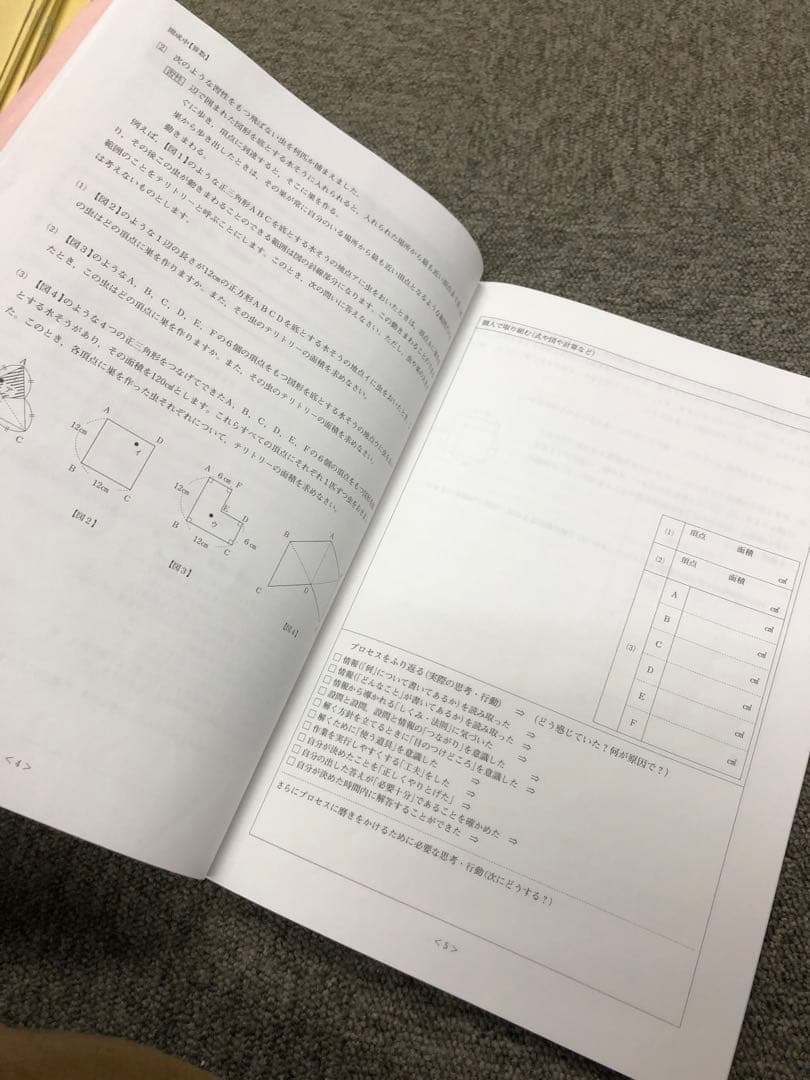 開成中【算数】
［2］ 次のような習性をもつ飛ばない虫を何匹か捕まえました。
［習性］ 辺で囲まれた図形を底とする水そうに入れられると、入れられた場所から最も近い頂点まで
ぐに歩き、頂点に到達すると、そこに巣を作る。
巣から歩き出したときは、その巣が常に自分のいる場所から最も近い頂点となるような
動きまわる。
例えば、【図1】のような正三角形ABCを底とする水そうの地点アに虫をおいたときは、頂点
り、その後この虫が動きまわることのできる範囲は図の斜線部分になります。この動きまわることの
範囲のことをテリトリーと呼ぶことにします。このとき、次の問いに答えなさい。ただし、
は考えないものとします。
(1) 【図2】のような1辺の長さが12㎝の正方形ABCDを底とする水そうの地点イに虫をおいたとき、
の虫はどの頂点に巣を作りますか。また、その虫のテリトリーの面積を求めなさい。
(2) 【図3】のようなA、B、C、D、E、Fの6個の頂点をもつ図形を底とする水そうの地点ウに虫を
たとき、この虫はどの頂点に巣を作りますか。また、その虫のテリトリーの面積を求めなさい。
(3) 【図4】のような4つの正三角形をつなげてできたA、B、C、D、E、Fの6個の頂点をもつ
とする水そうがあり、その面積を120㎠とします。これらすべての頂点にそれぞれ1匹ずつ虫を
た。このとき、各頂点に巣を作った虫それぞれについて、テリトリーの面積を求めなさい。
A
C
A
D
12㎝
イ
B
12㎝
C
【図2】
A
6㎝
F
12㎝
E
D
ウ
6㎝
B
12㎝
C
【図3】
B
A
C
D
【図4】
<4>
個人で取り組む(式や図や計算など)
(1) 頂点 面積 ㎠
(2) 頂点 面積 ㎠
(3)
A ㎠
B ㎠
C ㎠
D ㎠
E ㎠
F ㎠
プロセスをふり返る(実際の思考・行動) ⇒ (どう感じていた？何が原因で？)
□ 情報(「何」について書いてあるか)を読み取った ⇒
□ 情報(「どんなこと」が書いてあるか)を読み取った ⇒
□ 情報から導かれる「しくみ・法則」に気づいた ⇒
□ 設問と設問、設問と情報の「つながり」を意識した ⇒
□ 解く方針を立てるときに「目のつけどころ」を意識した ⇒
□ 解くために「使う道具」を意識した ⇒
□ 作業を実行しやすくする「工夫」をした ⇒
□ 自分が決めたことを「正しくやりとげた」 ⇒
□ 自分の出した答えが「必要十分」であることを確かめた ⇒
□ 自分が決めた時間内に解答することができた ⇒
さらにプロセスに磨きをかけるために必要な思考・行動(次にどうする？)
<5>